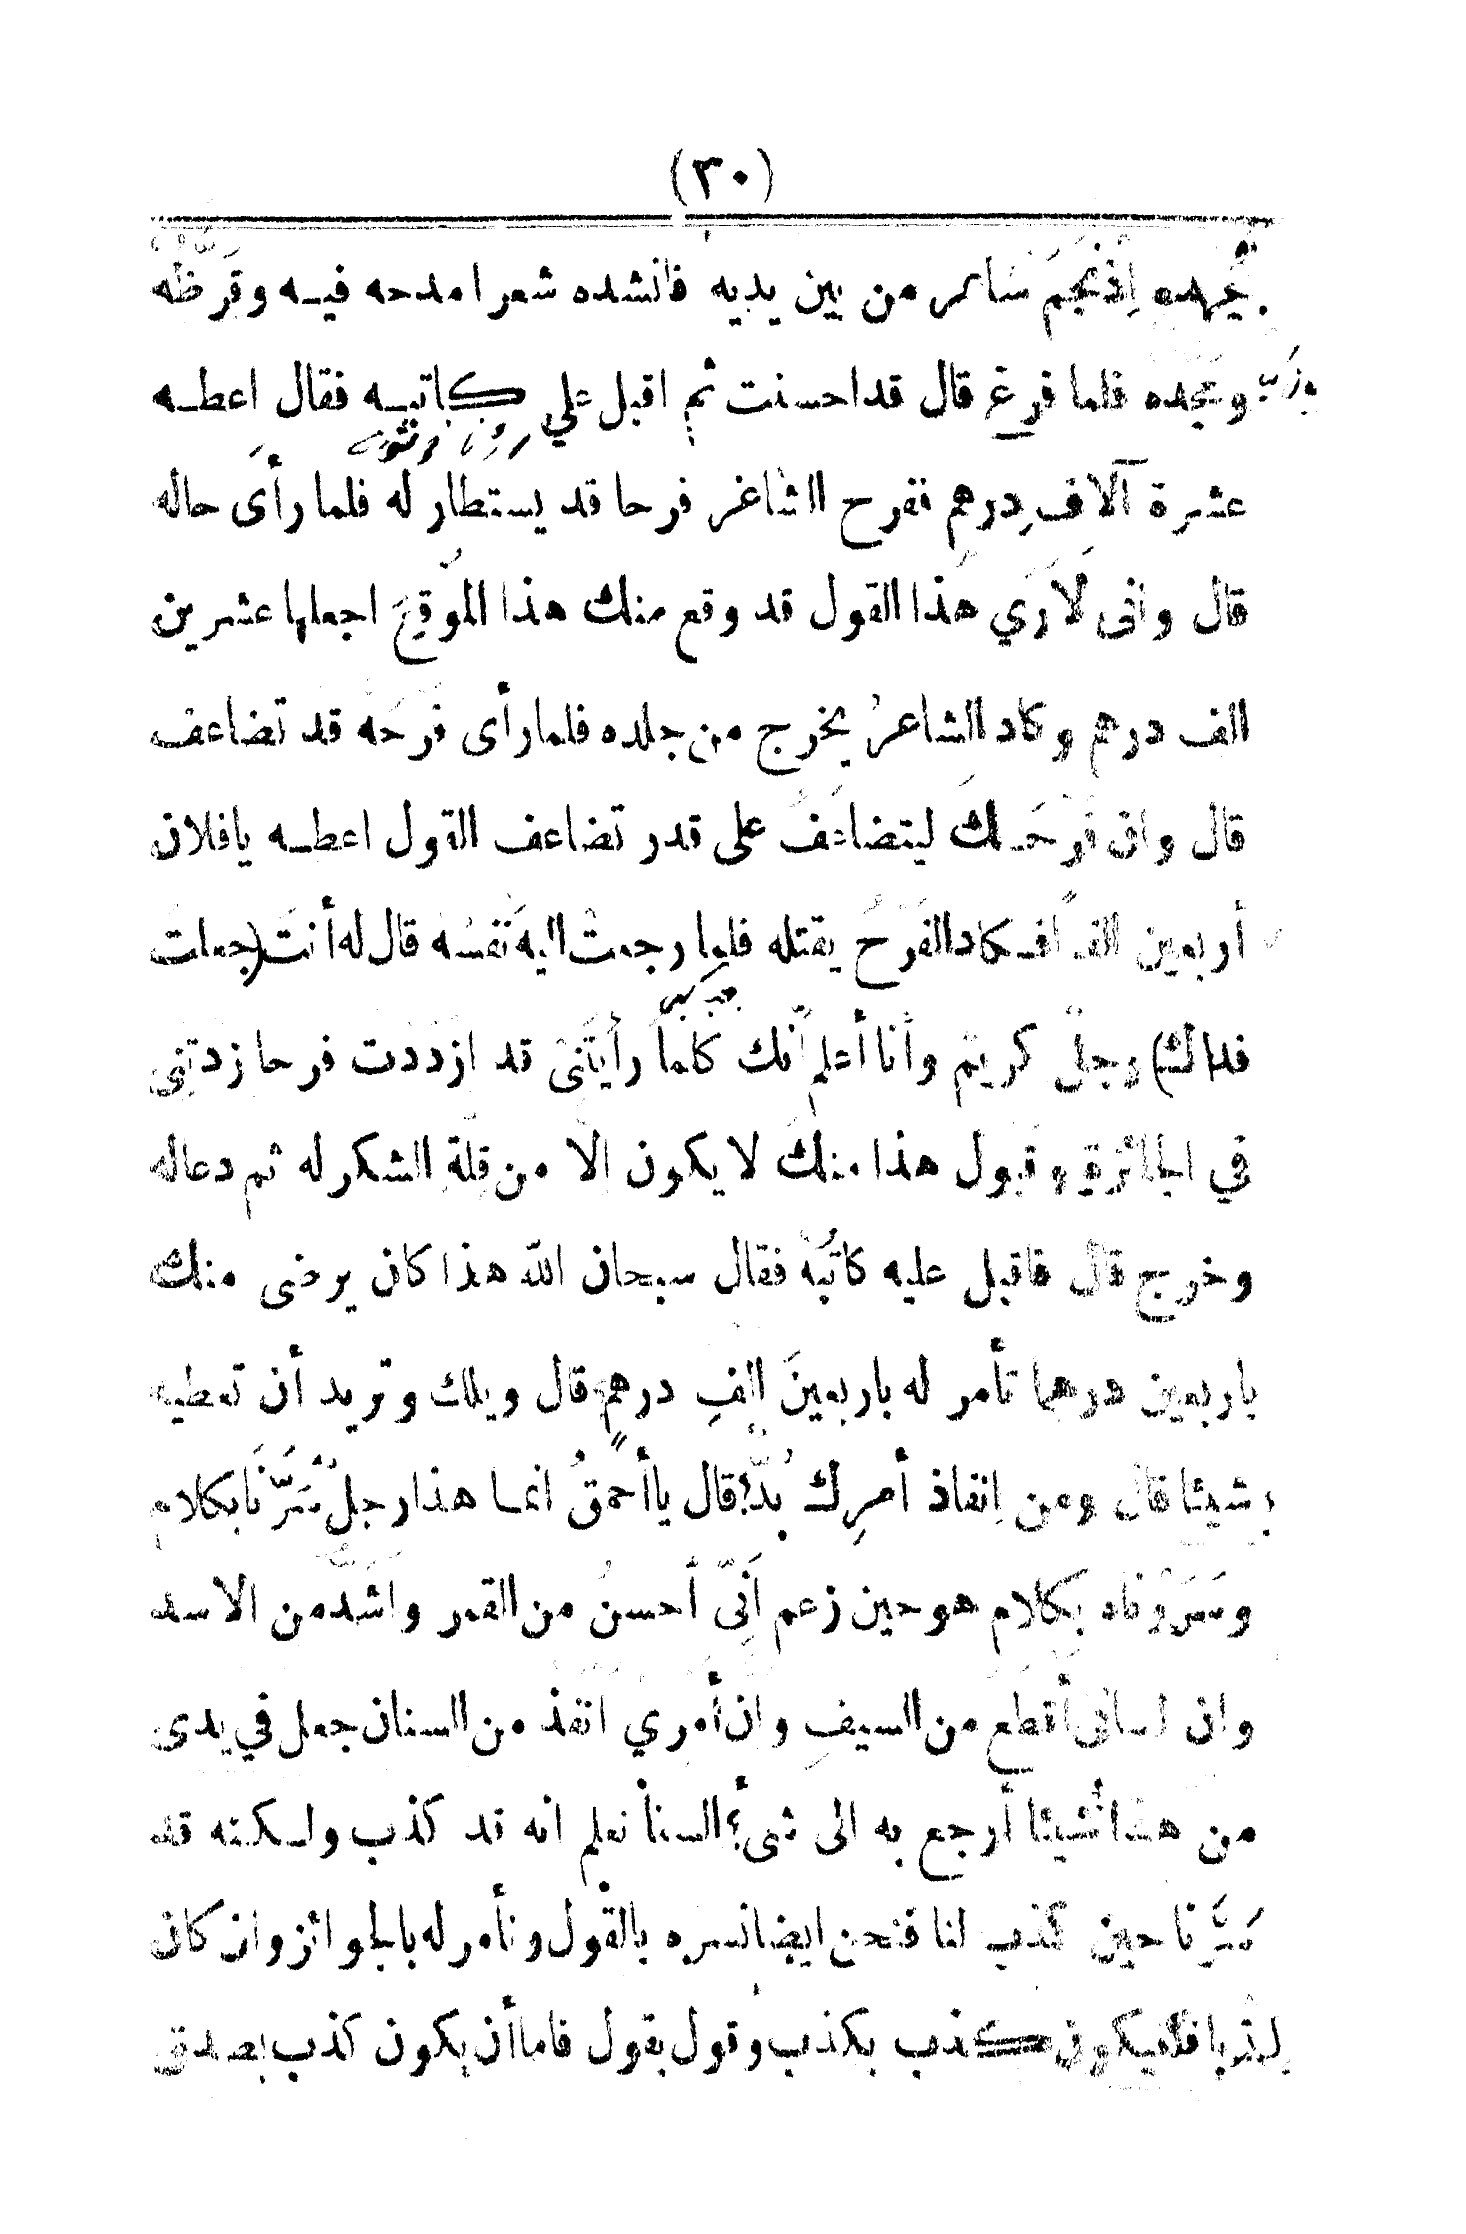 (٣٠)
إذ نجم شاعر من بين يديه فانشده شعرا مدحه فيه وقرظه
ومجده فلما فرغ قال قد احسنت ثم اقبل علي كاتبه فقال اعطه
عشرة آلاف درهم ففرح الشاعر فرحا قد يستطار له فلما رأى حاله
قال وانى لارى هذا القول قد وقع منك هذا الموقع اجعلها عشرين
الف درهم وكاد الشاعر يخرج من جلده فلما رأى فرحه قد تضاعف
قال وان فرحك ليتضاعف على قدر تضاعف القول اعطه يافلان
أربعين الفا فكاد الفرح يقتله فلما رجعت اليه نفسه قال له أنت (جعلت
فداك) رجل كريم وأنا أعلم أنك كلما رأيتنى قد ازددت فرحا زدتنى
في الجائزة وقبول هذا منك لا يكون الا من قلة الشكر له ثم دعاله
وخرج قال فاقبل عليه كاتبه فقال سبحان الله هذا كان يرضى منك
باربعين درهما تأمر له باربعين الف درهم قال ويلك وتريد أن تعطيه
شيئا قال ومن إنفاذ أمرك بدّ؟ قال ياأحمق انما هذا رجل سرّنا بكلام
وسررناه بكلام هو حين زعم أنّى أحسن من القمر واشدّ من الاسد
وان لسانى أقطع من السيف وان أمري انفذ من السنان جعل في يدى
من هذا شيئا أرجع به الى شئ؟ السنا نعلم انه قد كذب ولكنه قد
سرّنا حين كذب لنا فنحن ايضا نسره بالقول ونأمر له بالجوائز وان كان
كذبا فيكون كذب بكذب وقول بقول فاما أن يكون كذب بصدق